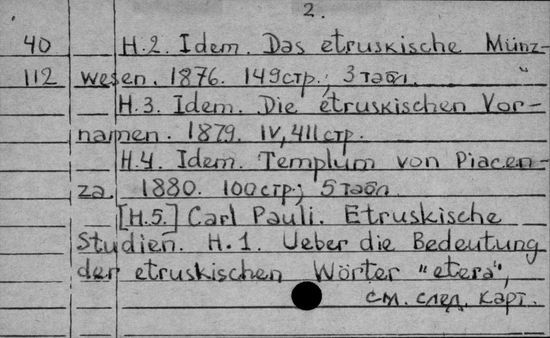 2.
40 H.2. Idem. Das etruskische Münz-
112 wesen. 1876. 149стр.; 3 табл.
H.3. Idem. Die etruskischen Vor-
namen. 1879. IV, 411стр.
H.4. Idem. Templum von Piacen-
za. 1880. 100стр.; 5 табл.
[H.5.] Carl Pauli. Etruskische
Studien. H.1. Ueber die Bedeutung
der etruskischen Wörter "etera",
см. след. карт.